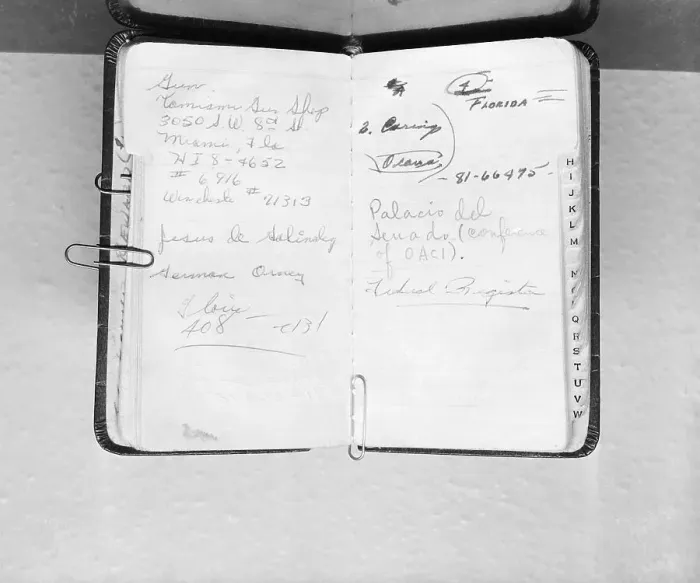 Gun
Tamiami Gun Shop
3050 S.W. 8th St.
Miami, Fla
HI 8-4652
# 6916
Winchester # 21313
Jesus de Galindez
German Ornes
408
FLORIDA
81-66475-
Palacio del
Senado (conference
of OACI).
Federal Register
H
I
J
K
L
M
N
Q
R
S
T
U
V
W